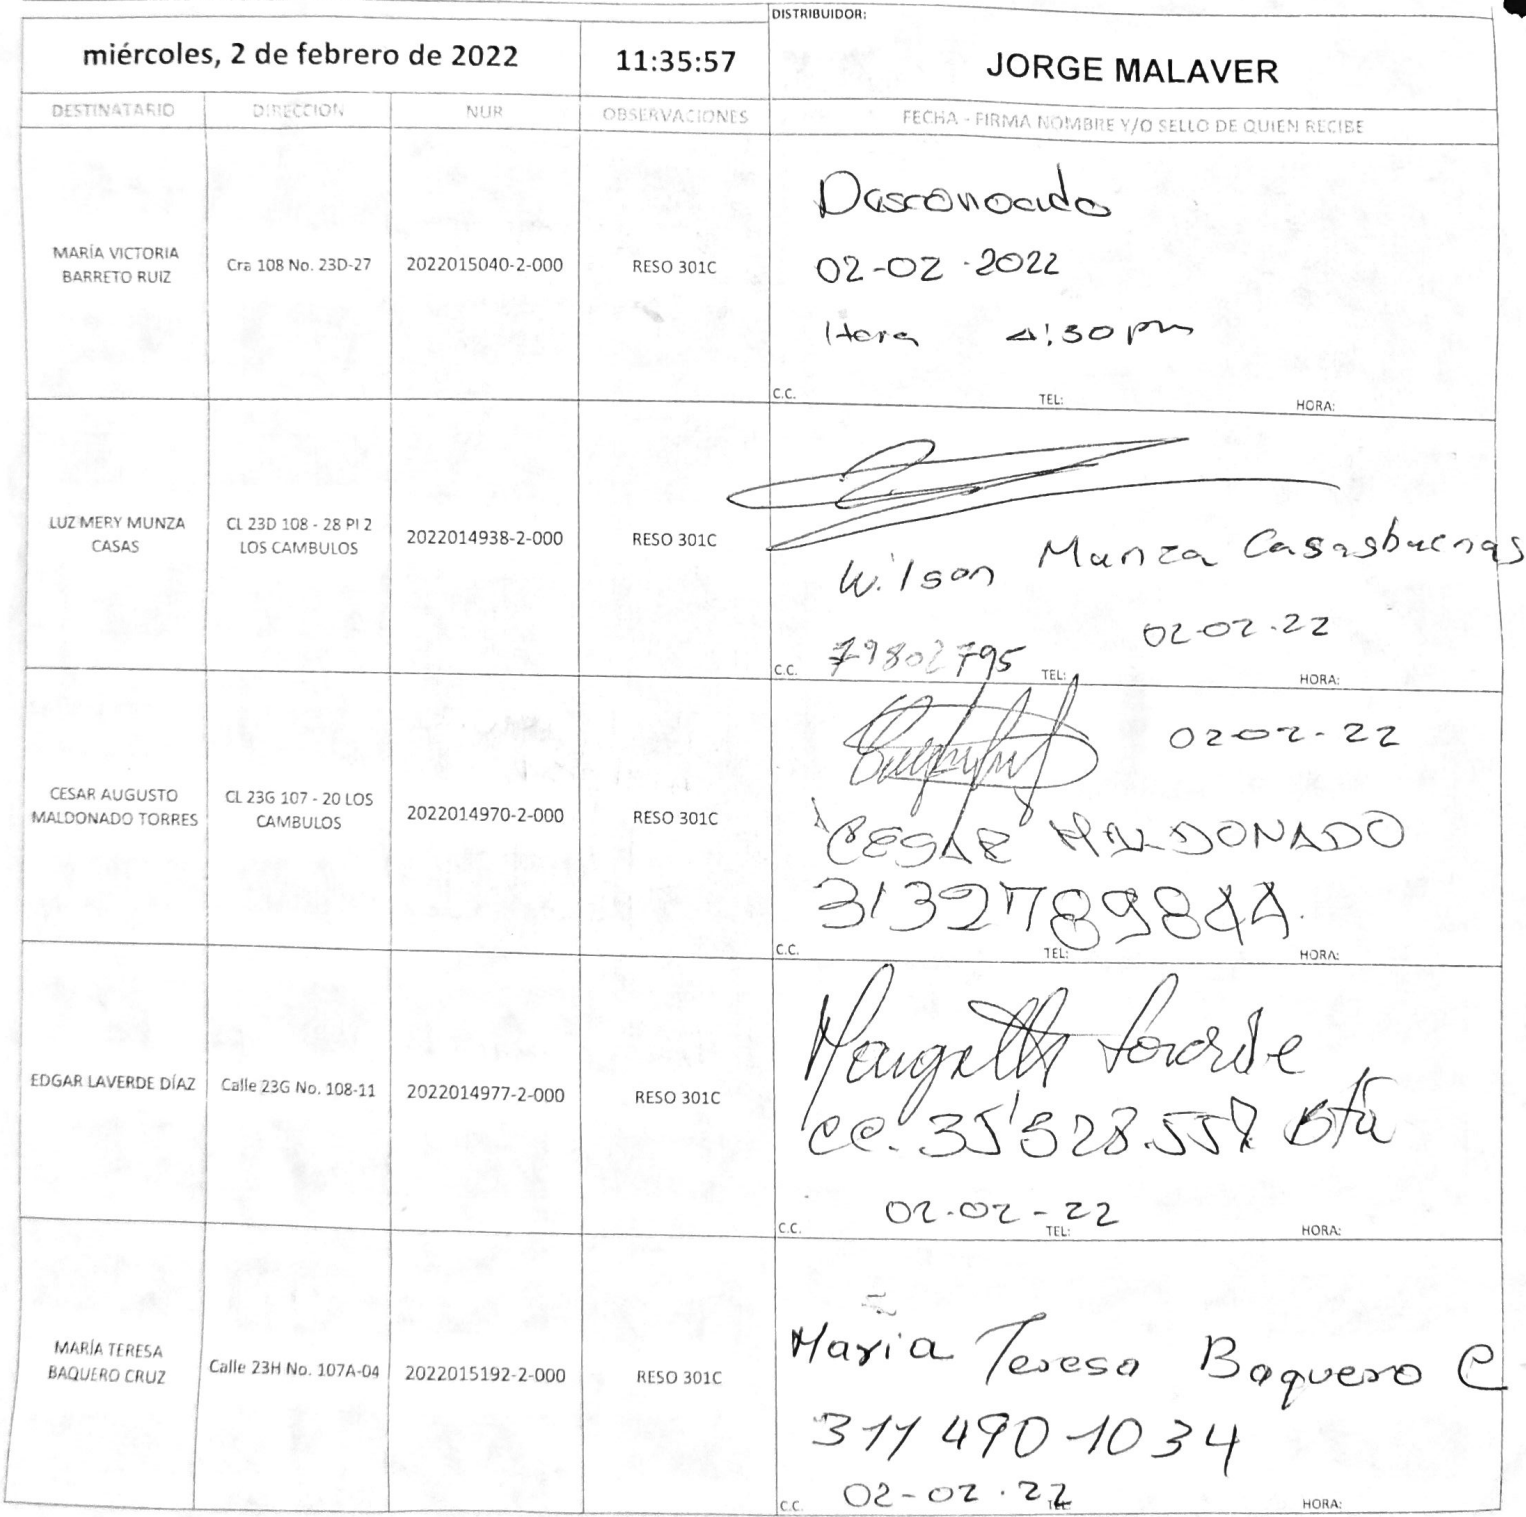 DISTRIBUIDOR:
miércoles, 2 de febrero de 2022 11:35:57 JORGE MALAVER
DESTINATARIO DIRECCION NUR OBSERVACIONES FECHA - FIRMA NOMBRE Y/O SELLO DE QUIEN RECIBE
MARÍA VICTORIA
BARRETO RUIZ
Cra 108 No. 23D-27
2022015040-2-000
RESO 301C
Desconocido
02-02-2022
Hora 4:30 pm
C.C. TEL: HORA:
LUZ MERY MUNZA
CASAS
CL 23D 108 - 28 PI 2
LOS CAMBULOS
2022014938-2-000
RESO 301C
Wilson Munza Casasbuenas
02-02-22
C.C. 79802795 TEL: HORA:
CESAR AUGUSTO
MALDONADO TORRES
CL 23G 107 - 20 LOS
CAMBULOS
2022014970-2-000
RESO 301C
0202-22
CESAR MALDONADO
3132789844
C.C. TEL: HORA:
EDGAR LAVERDE DÍAZ
Calle 23G No. 108-11
2022014977-2-000
RESO 301C
Laverde
CC. Bta
02-02-22
C.C. TEL: HORA:
MARÍA TERESA
BAQUERO CRUZ
Calle 23H No. 107A-04
2022015192-2-000
RESO 301C
Maria Teresa Baquero C
311 490 1034
02-02-22
C.C. TEL: HORA: